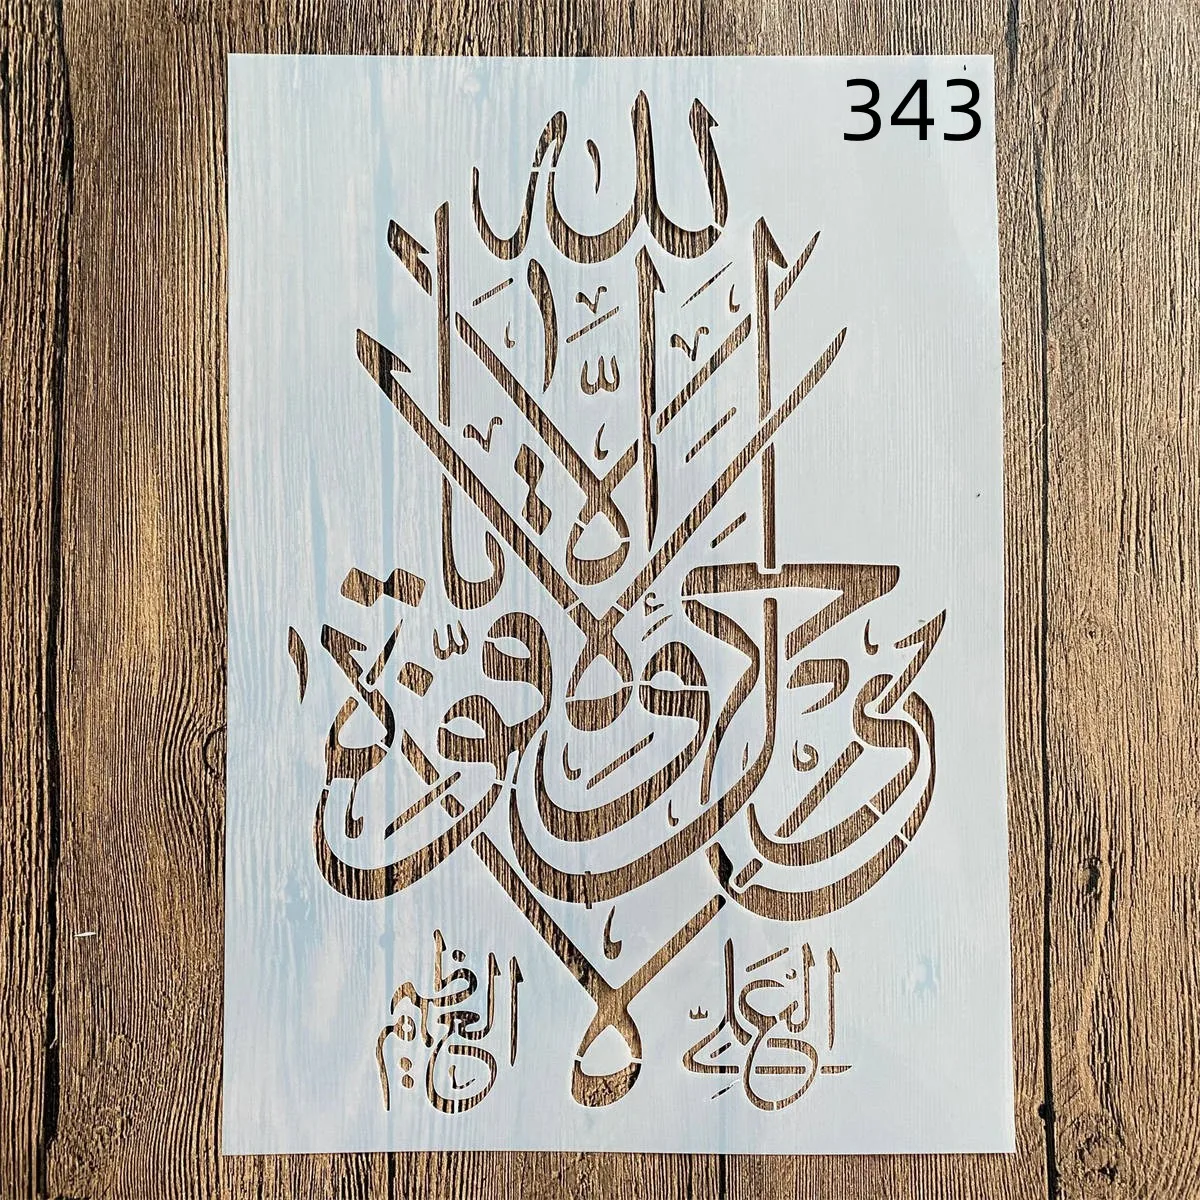 343
لا حول ولا قوة إلا بالله
العلي العظيم